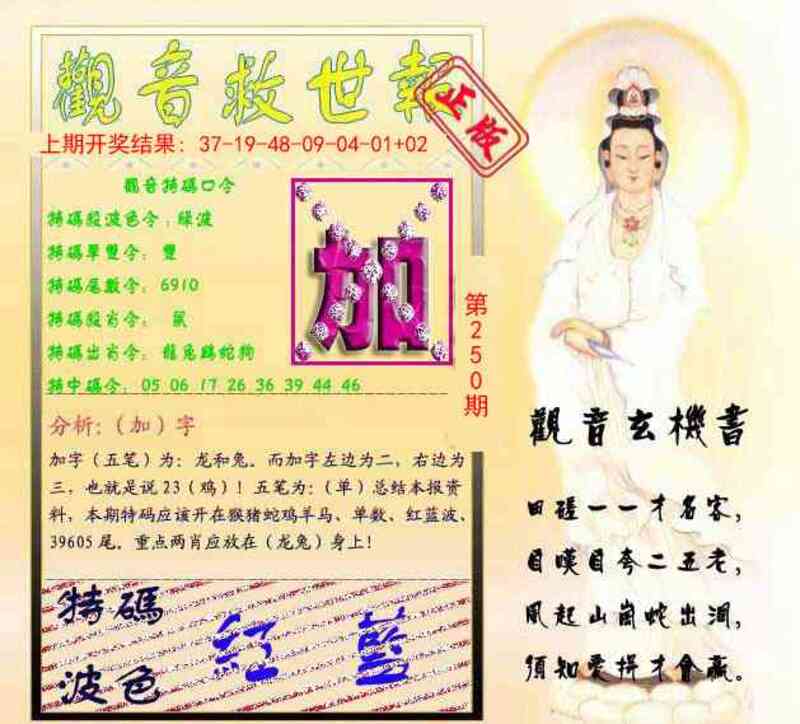 觀音救世報
正版
上期开奖结果：37-19-48-09-04-01+02
觀音特碼口令
特碼殺波色令：綠波
特碼單雙令：雙
特碼尾數令：6910
特碼殺肖令：鼠
特碼出肖令：龍兔鷄蛇狗
特中碼令：05 06 17 26 36 39 44 46
加
第250期
分析：（加）字
加字（五笔）为：龙和兔。而加字左边为二，右边为
三，也就是说23（鸡）！五笔为：（单）总结本报资
料，本期特码应该开在猴猪蛇鸡羊马、单数、红蓝波、
39605尾。重点两肖应放在（龙兔）身上！
特碼
波色
紅 藍
觀音玄機書
日磋一一才名客，
目嘆目夸二五老，
風起山崗蛇出洞，
須知愛拼才會贏。